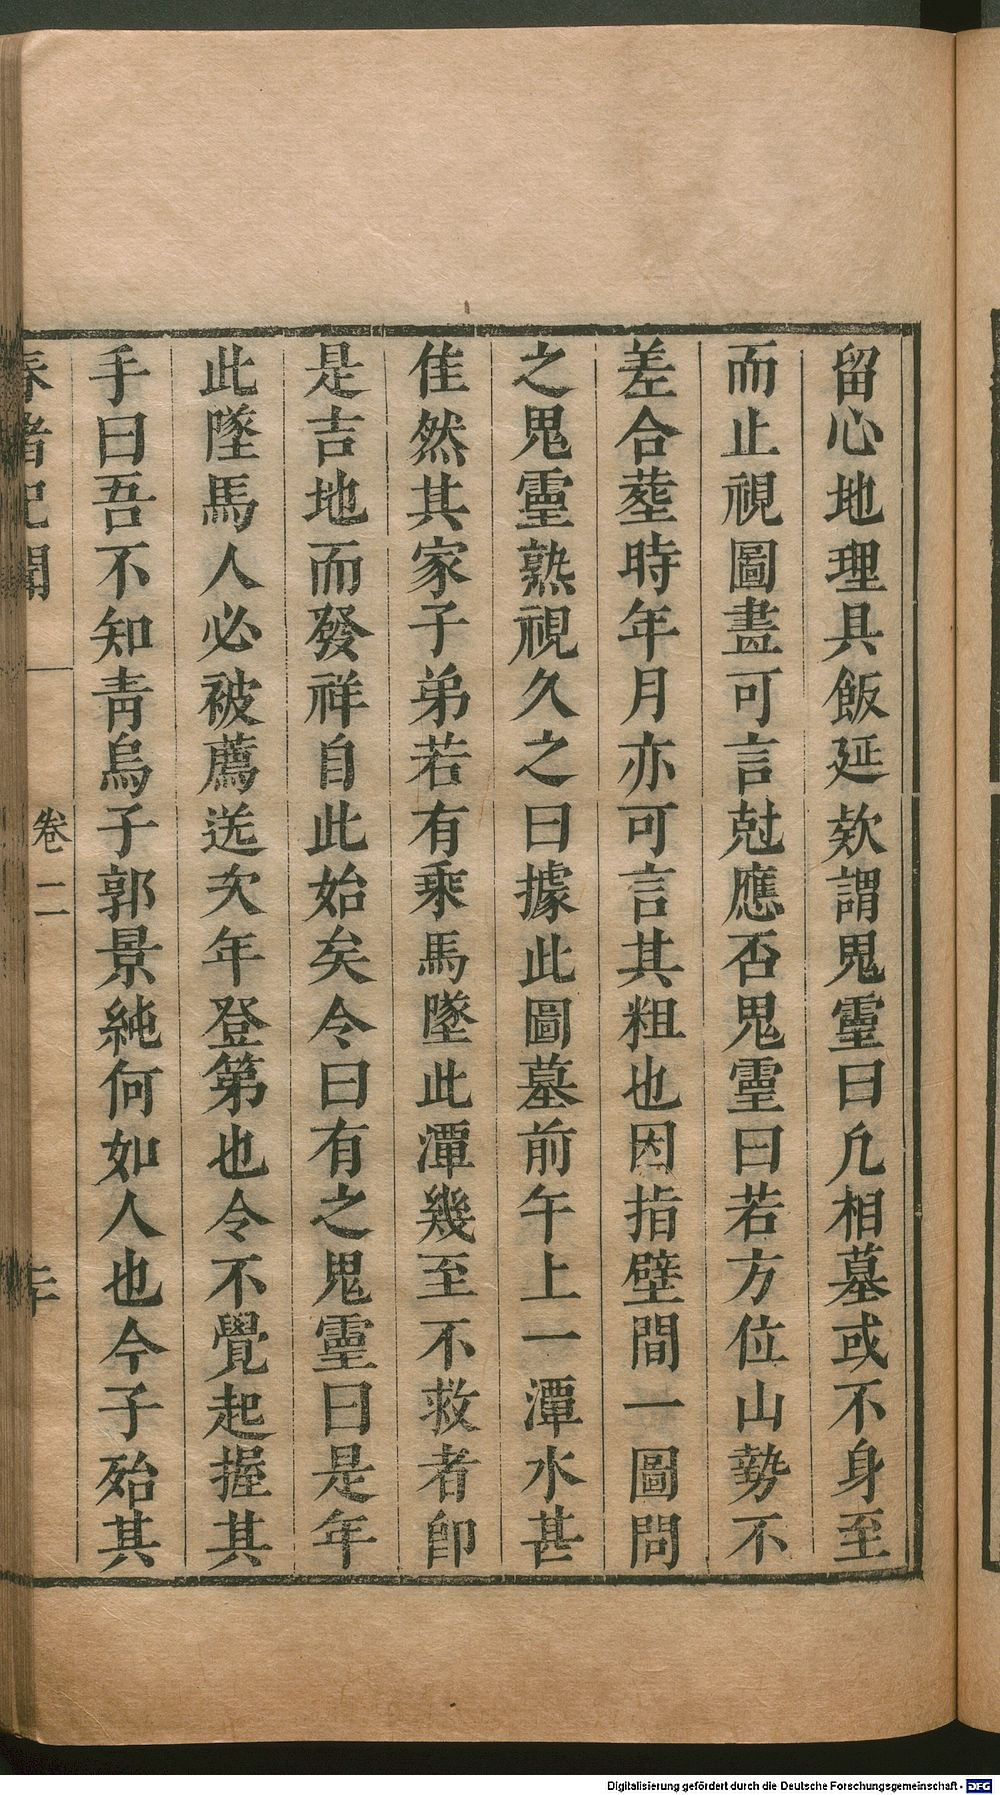 留心地理具飯延欵謂鬼靈曰凢相墓或不身至
而止視圖畫可言尅應否鬼靈曰若方位山勢不
差合塟時年月亦可言其粗也因指壁間一圖問
之鬼靈熟視久之曰據此圖墓前午上一潭水甚
佳然其家子弟若有乘馬墜此潭幾至不救者卽
是吉地而發祥自此始矣令曰有之鬼靈曰是年
此墜馬人必被薦送次年登第也令不覺起握其
手曰吾不知靑烏子郭景純何如人也今子殆其
春渚紀聞 卷二
Digitalisierung gefördert durch die Deutsche Forschungsgemeinschaft - DFG